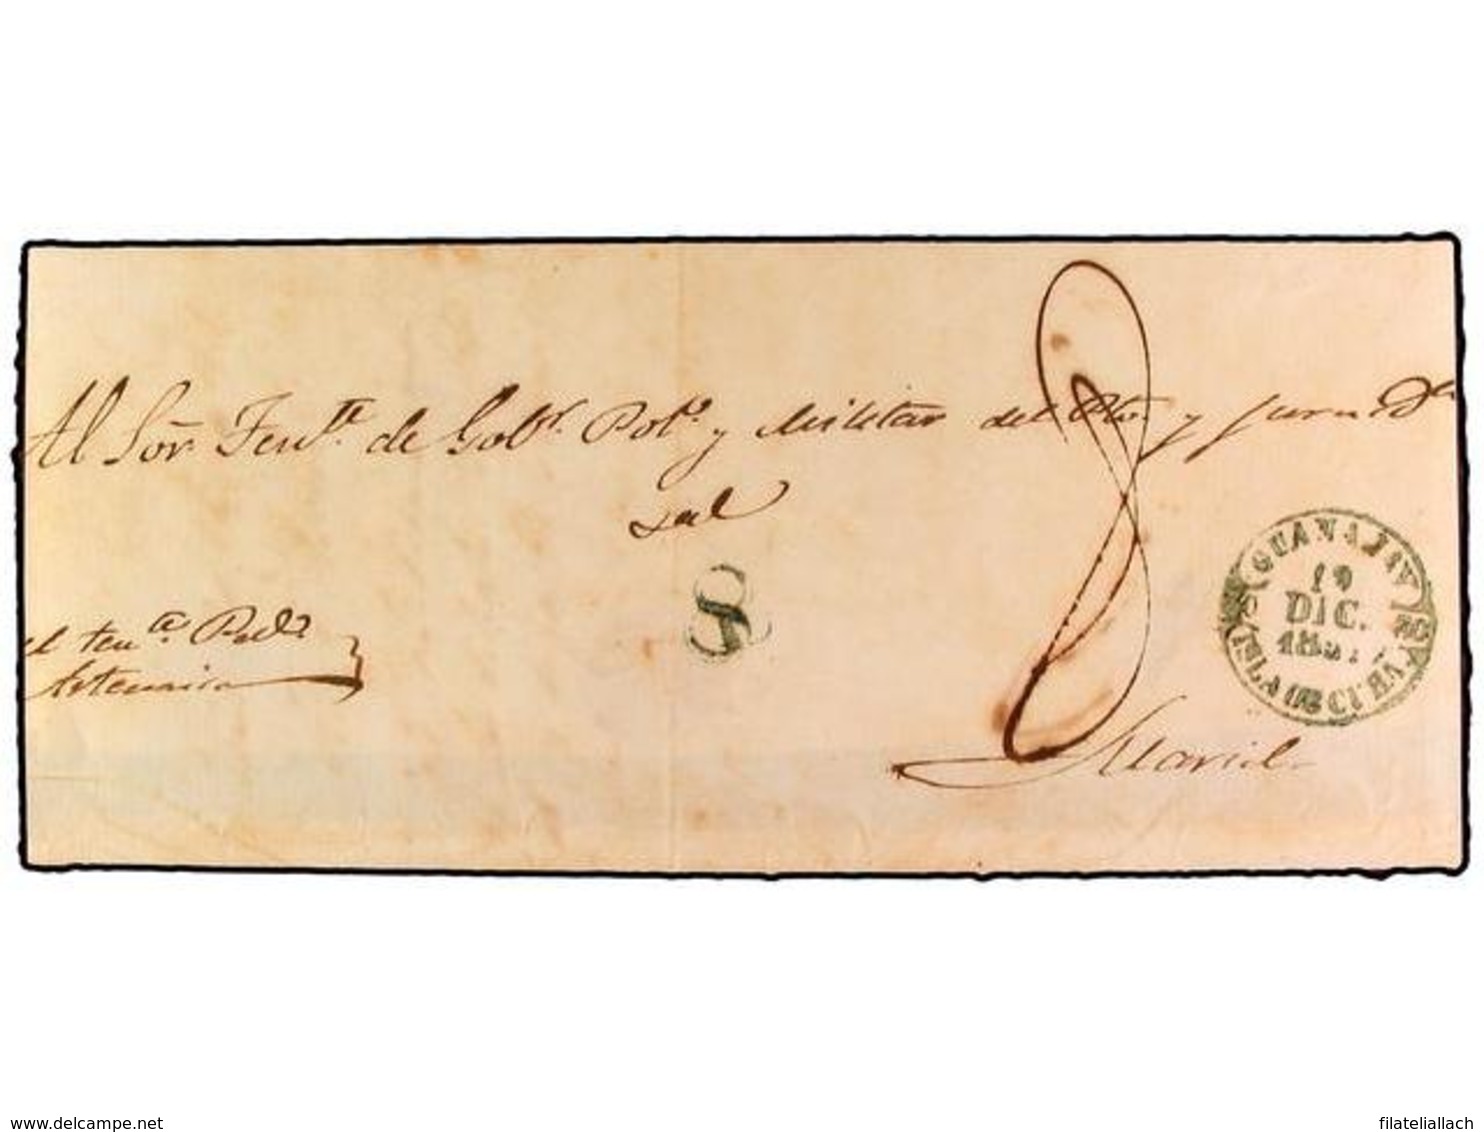 Al Sor. Tente. de Gobr. Polo. y Militar del Pto. y Jurisdn.
8
el tente. Pedo.
Artemisa
GUANAJAY
19
DIC.
ISLA DE CUBA
Mariel
www.delcampe.net
filatelialllach